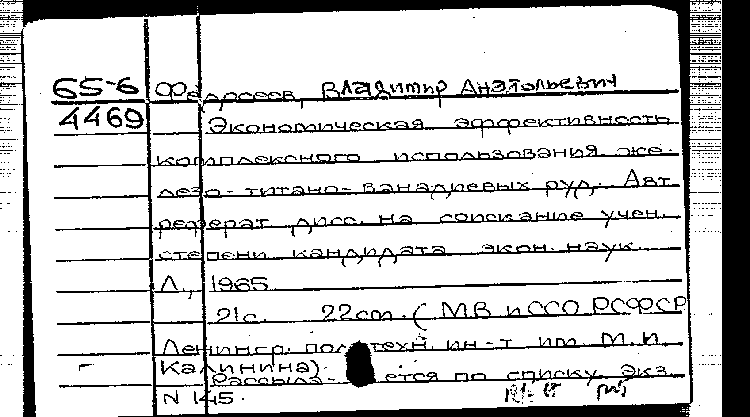 65-6 Федорсеев, Владимир Анатольевич
4469 Экономическая эффективность
комплексного использования же-
лезо-титано-ванадиевых руд. Авт
реферат дисс. на соискание учен.
степени кандидата экон. наук.
Л., 1965
21с. 22cm. (МВ и ССО РСФСР
Ленингр. политехн. ин-т им М. И.
Калинина).
Рассыл ется по списку. Экз.
N 145.